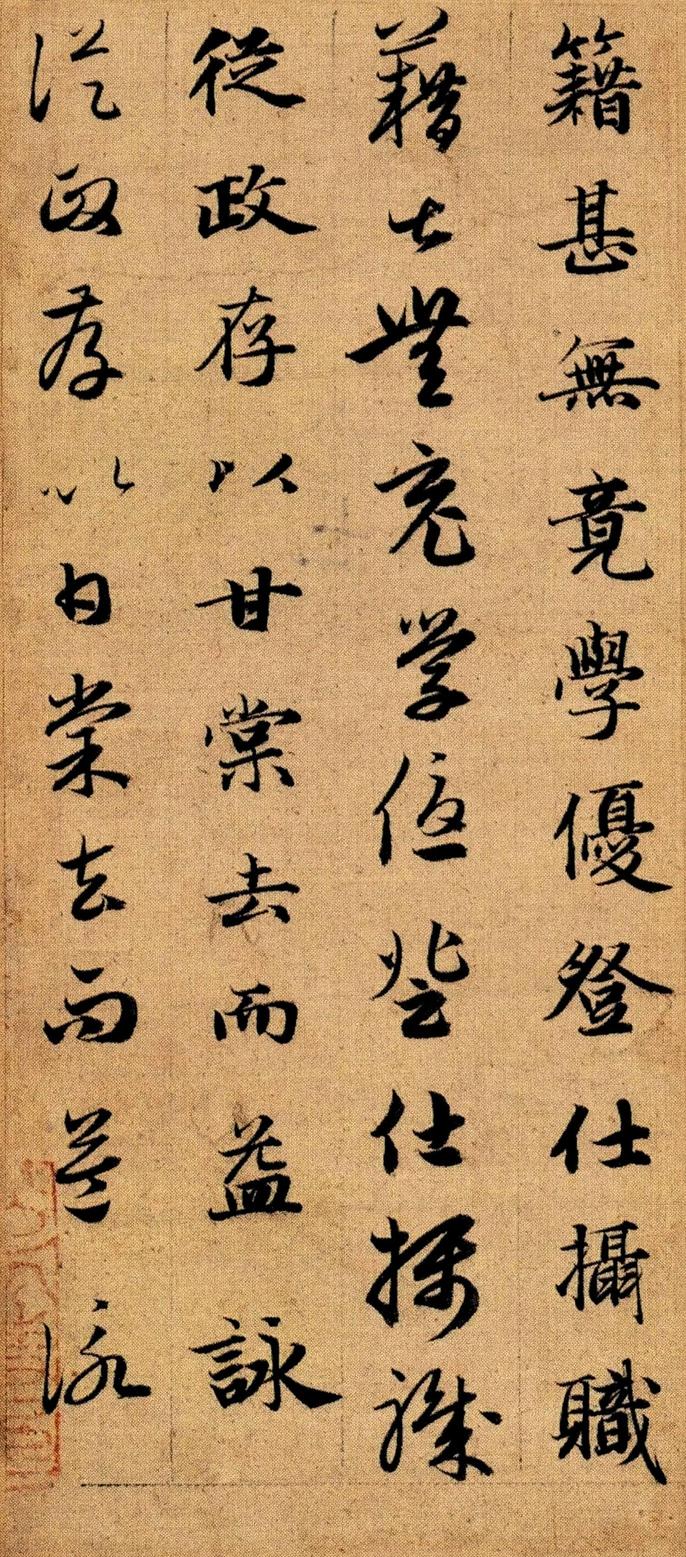 籍甚無竟學優登仕攝職
藉甚無竟學優登仕攝職
從政存以甘棠去而益詠
從政存以甘棠去而益詠